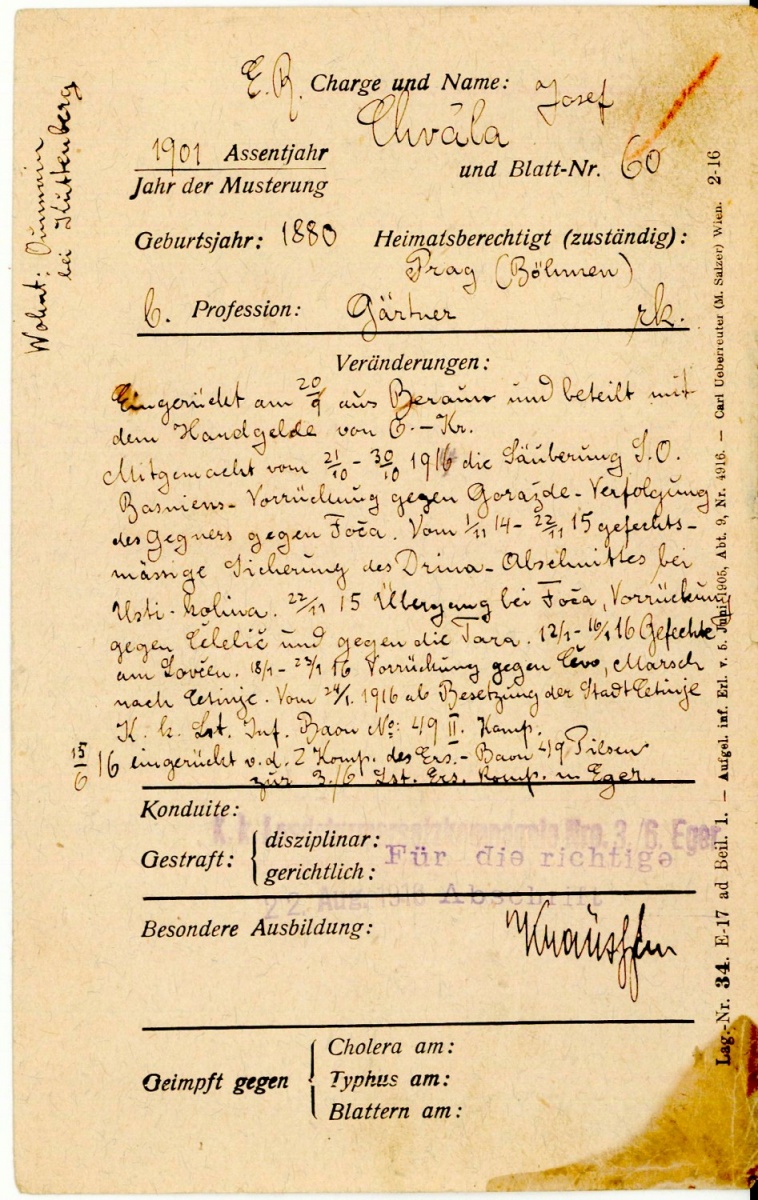 E.R. Charge und Name: Josef
Chvála
1901 Assentjahr
Jahr der Musterung
und Blatt-Nr. 60
Geburtsjahr: 1880 Heimatsberechtigt (zuständig):
Prag (Böhmen)
b. Profession: Gärtner rk.
Veränderungen:
Eingerückt am 20/9 aus Beraun und beteilt mit
dem Handgelde von 6.– Kr.
Mitgemacht vom 21/10 – 30/10 1916 die Säuberung S.O.
Basniens - Vorrückung gegen Goražde - Verfolgung
des Gegners gegen Foča. Vom 1/11 14 – 22/11 15 gefechts-
mässige Sicherung des Drina-Abschnittes bei
Usti-kolina. 22/11 15 Übergang bei Foča, Vorrückung
gegen Čelelič und gegen die Tara. 12/1 – 16/1 16 Gefechte
am Lovčen. 18/1 – 23/1 16 Vorrückung gegen Čevo, Marsch
nach Cetinje. Vom 24/1. 1916 ab Besetzung der Stadt Cetinje
K. k. Lst. Inf. Baon No: 49 II. Komp.
15/6 16 eingerückt v. d. 2 Komp. des Ers.- Baon 49 Pilsen
zur 3./6 Lst. Ers. Komp. in Eger.
Konduite:
K. k. Landsturmersatzkompagnie Nro. 3./6. Eger
Gestraft: { disziplinar:
gerichtlich:
Für die richtige
22. Aug. 1916 Abschrift
Besondere Ausbildung:
Geimpft gegen { Cholera am:
Typhus am:
Blattern am:
Wohnt:
bei Kuttenberg
Lag.-Nr. 34. E-17 ad Beil. 1. — Aufgel. inf. Erl. v. 5. Juni 1905, Abt. 9, Nr. 4916. — Carl Ueberreuter (M. Salzer) Wien. 2-16